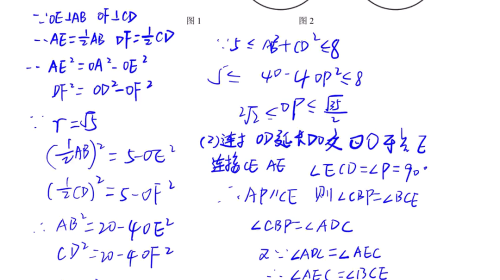 ∵OE⊥AB OF⊥CD
∴AE=½AB DF=½CD
∴AE²=OA²-OE²
DF²=OD²-OF²
∵ r=√5
(½AB)²=5-OE²
(½CD)²=5-OF²
∴ AB²=20-4OE²
CD²=20-4OF²
图1
图2
∵5≤AB²+CD²≤8
5≤ 40-4OP²≤8
2√2≤OP≤√35/2
(2)连接 OD延长DO交⊙O于点E
连接CE AE ∠ECD=∠P=90°
∴AP∥CE 则∠CBP=∠BCE
∠CBP=∠ADC
又∵∠ADC=∠AEC
∴∠AEC=∠BCE